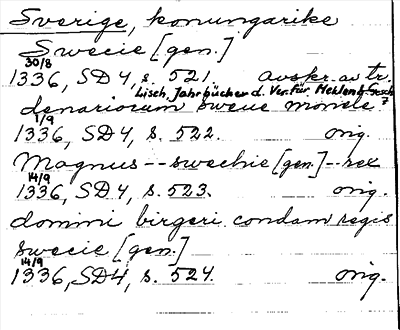 Sverige, konungarike
Swecie [gen.]
30/8
1336, SD4, s. 521. avskr. av tr.
Lisch, Jahrbücher d. Ver. für Meklenb. Gesch. 7
denariorum sweue monete
1/9
1336, SD4, s. 522. orig.
Magnus -- swechie [gen.] -- rex
14/9
1336, SD4, s. 523. orig.
domini birgeri condam regis
swecie [gen.]
14/9
1336, SD4, s. 524. orig.